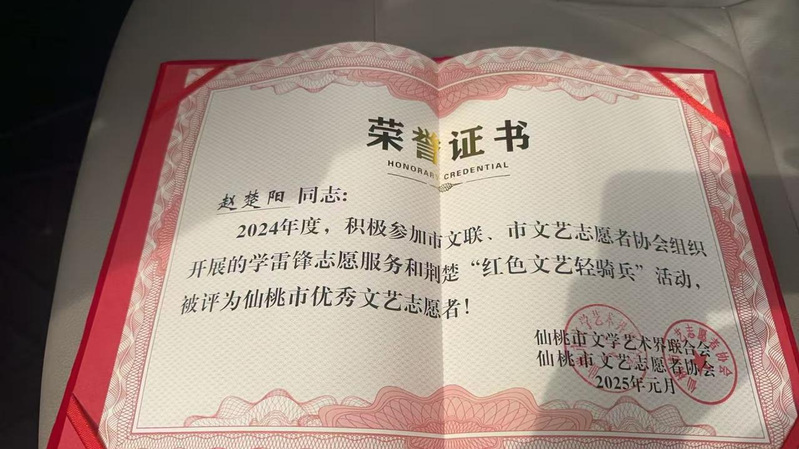 荣誉证书
HONORARY CREDENTIAL
赵楚阳 同志:
2024年度，积极参加市文联、市文艺志愿者协会组织
开展的学雷锋志愿服务和荆楚“红色文艺轻骑兵”活动，
被评为仙桃市优秀文艺志愿者！
仙桃市文学艺术界联合会
仙桃市文艺志愿者协会
2025年元月